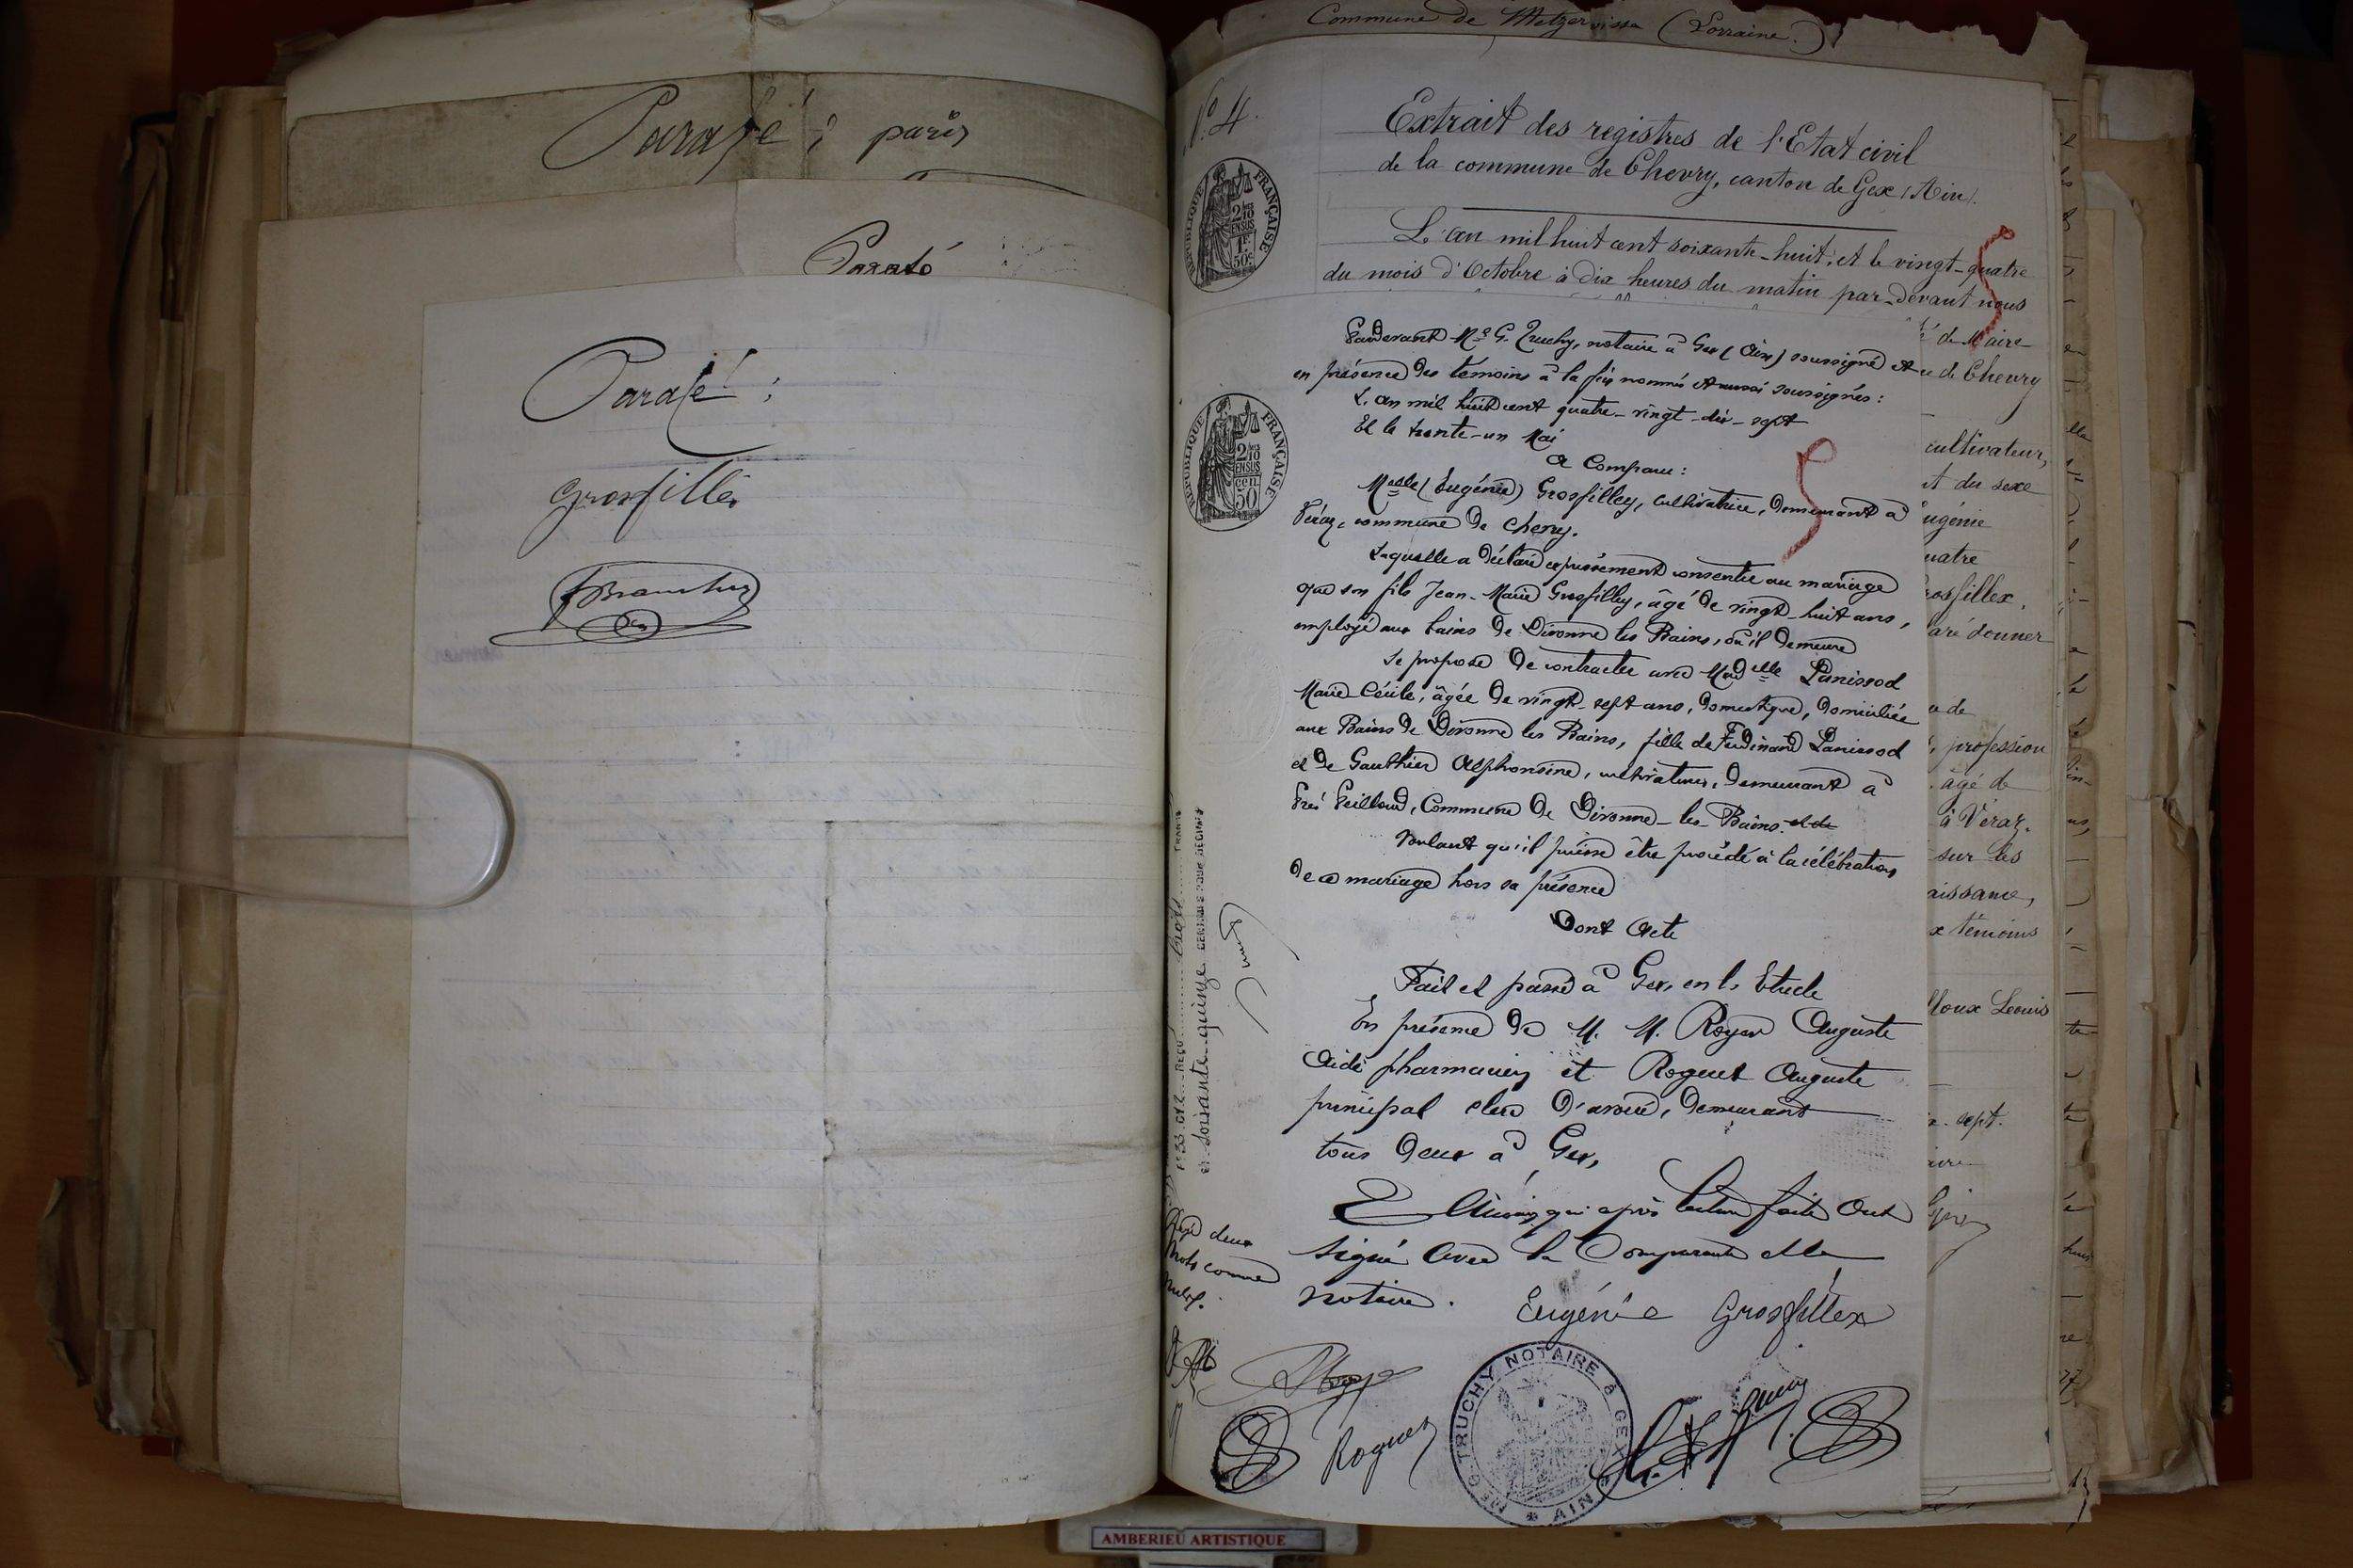 Parafé ; paris
Parafé
Parafé ;
Grosfillex
Commune de Metzervisse (Lorraine.)
N.º 4.
Extrait des registres de l'Etat civil
de la commune de Chevry, canton de Gex (Ain).
L'an mil huit cent soixante-huit, et le vingt-quatre
du mois d'Octobre à dix heures du matin par-devant nous
RÉPUBLIQUE FRANÇAISE
2/10 EN SUS
1F 50c
RÉPUBLIQUE FRANÇAISE
2/10 EN SUS
50
Pardevant Me G. Truchy, notaire à Gex (Ain) soussigné et
en présence des témoins à la fin nommés et aussi soussignés :
L'an mil huit cent quatre-vingt-dix-sept
Et le trente-un Mai
A Comparu :
Melle (Eugénie) Grosfilley, cultivatrice, demeurant à
Véraz, commune de Chevry.
Laquelle a déclaré expressément consentir au mariage
que son fils Jean-Marie Grosfilley, âgé de vingt-huit ans,
employé aux bains de Divonne les Bains, où il demeure
Se propose de contracter avec Madelle Panissod
Marie Cécile, âgée de vingt-sept ans, domestique, domiciliée
aux Bains de Divonne les Bains, fille de Ferdinand Panissod
et de Gauthier Alphonsine, cultivateurs, demeurant à
Commune de Divonne-les-Bains. et de
Voulant qu'il puisse être procédé à la célébration
de ce mariage hors sa présence
Dont Acte
Fait et passé à Gex, en l'Etude
En présence de M. M. Royer Auguste
aide pharmacien et Roguet Auguste
principal clerc d'avoué, demeurant
tous deux à Gex,
Et après lecture faite ont
signé avec la Comparante et le
notaire.
Eugénie Grosfillex
Rayé deux
mots comme
nuls.
Roguet
ME G. TRUCHY NOTAIRE à GEX * AIN *
soixante-quinze CENTIMES POUR DÉCIMES
de Maire
de Chevry
cultivateur,
et du sexe
ugénie
uatre
rosfillex,
laré donner
de
profession
âgé de
à Véraz.
sur les
aissance,
x témoins
lloux Leouis
x-sept.
AMBERIEU ARTISTIQUE